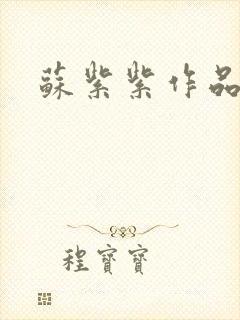 蘇紫紫作品
程寶寶